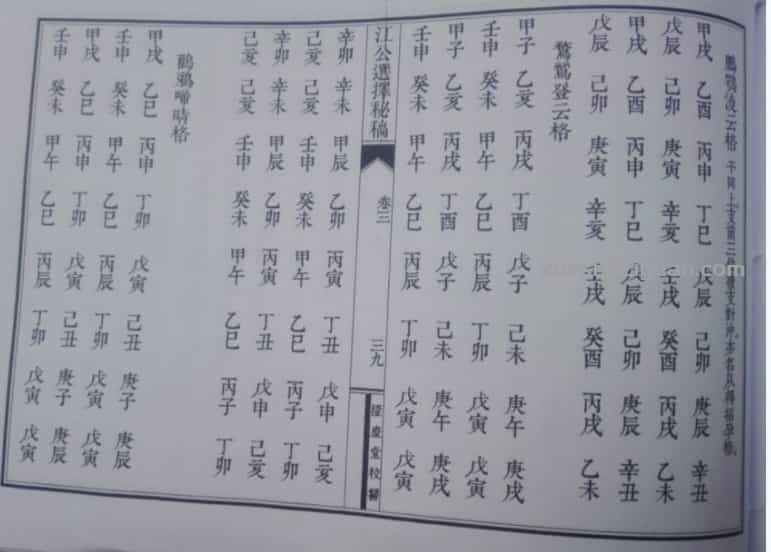 鵬鶚凌云格
甲戌 乙酉 丙申 丁巳 戊辰 己卯 庚辰 辛丑
戊辰 己卯 庚寅 辛亥 壬戌 癸酉 丙戌 乙未
甲戌 乙酉 丙申 丁巳 戊辰 己卯 庚辰 辛丑
戊辰 己卯 庚寅 辛亥 壬戌 癸酉 丙戌 乙未
登云格
甲子 乙亥 丙戌 丁酉 戊子 己未 庚午 庚戌
壬申 癸未 甲午 乙巳 丙辰 丁卯 戊寅 戊寅
甲子 乙亥 丙戌 丁酉 戊子 己未 庚午 庚戌
壬申 癸未 甲午 乙巳 丙辰 丁卯 戊寅 戊寅
江公選擇秘稿
卷三
三九
慶堂校
辛卯 辛未 甲辰 乙卯 丙寅 丁丑 戊申 己亥
己亥 己亥 壬申 癸未 甲午 乙巳 丙子 丁卯
辛卯 辛未 甲辰 乙卯 丙寅 丁丑 戊申 己亥
己亥 己亥 壬申 癸未 甲午 乙巳 丙子 丁卯
啼時格
甲戌 乙巳 丙申 丁卯 戊寅 己丑 庚子 庚辰
壬申 癸未 甲午 乙巳 丙辰 丁卯 戊寅 戊寅
甲戌 乙巳 丙申 丁卯 戊寅 己丑 庚子 庚辰
壬申 癸未 甲午 乙巳 丙辰 丁卯 戊寅 戊寅